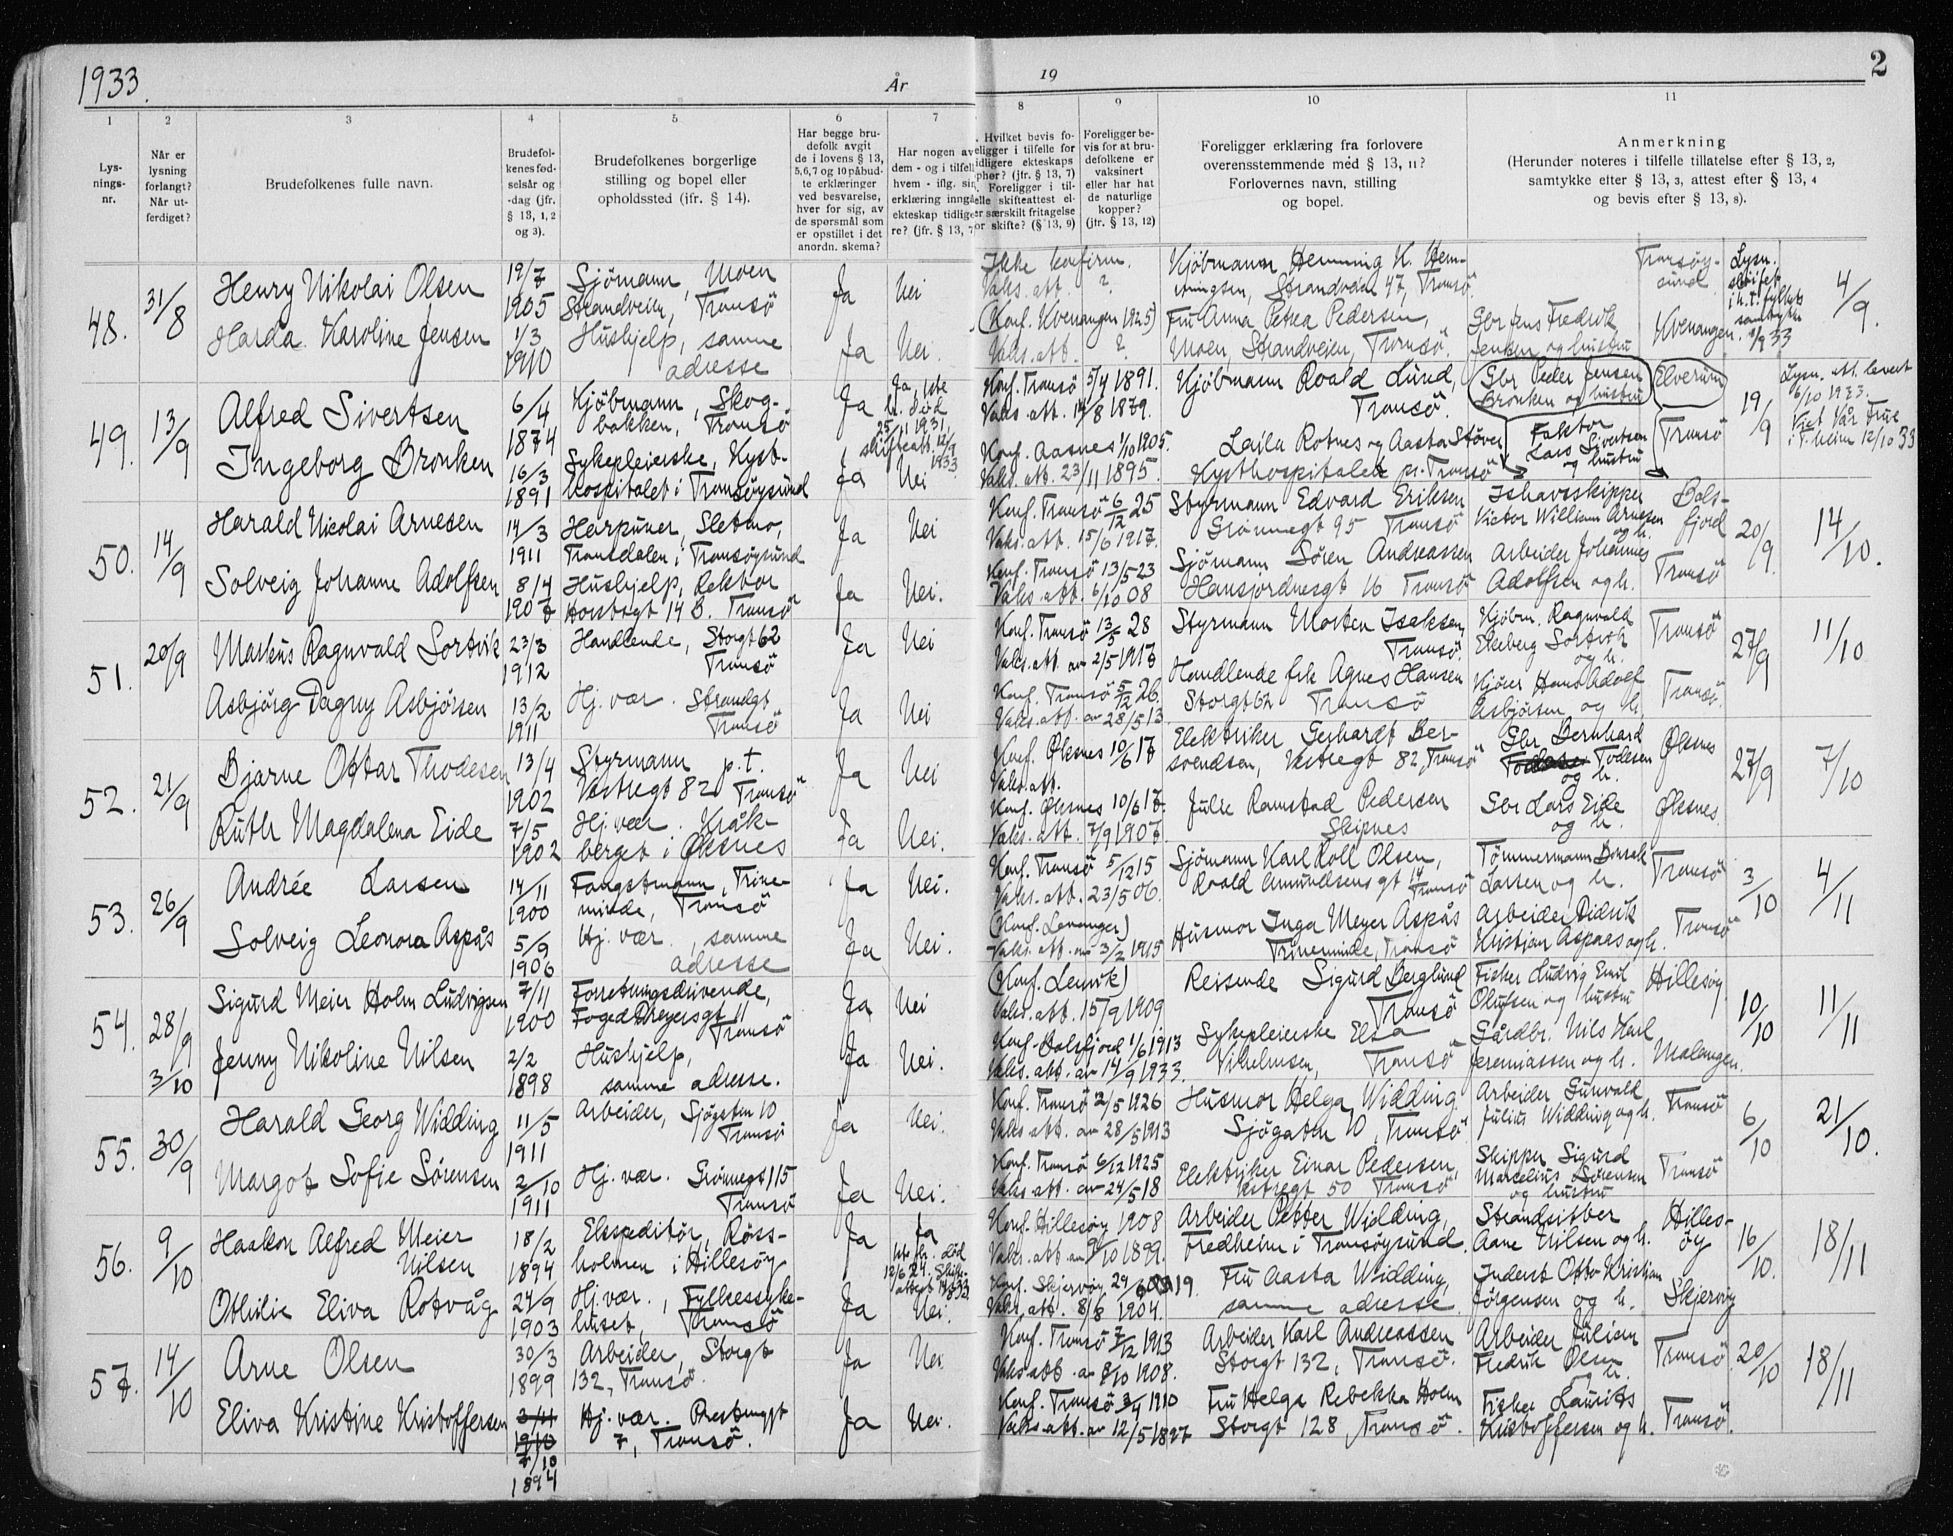 1933.
År
19
2
1
2
3
4
5
6
7
8
9
10
11
Lys-
nings-
nr.
Når er
lysning
forlangt?
Når ut-
ferdiget?
Brudefolkenes fulle navn.
Brudefol-
kenes fød-
selsår og
-dag (jfr.
§ 13, 1, 2
og 3).
Brudefolkenes borgerlige
stilling og bopel eller
opholdssted (jfr. § 14).
Har begge bru-
defolk avgit
de i lovens § 13,
5,6,7 og 10 påbud-
te erklæringer
ved besvarelse,
hver for sig, av
de spørsmål som
er opstillet i det
anordn. skema?
Har nogen av
dem - og i tilfell
hvem - iflg. sin
erklæring inngå
ekteskap tidlige
re? (jfr. § 13, 7
Hvilket bevis fo-
religger i tilfelle for
tidligere ekteskaps
ophør? (jfr. § 13, 7)
Foreligger i til-
felle skifteattest el-
ler særskilt fritagelse
for skifte? (§ 13, 9)
Foreligger be-
vis for at bru-
defolkene er
vaksinert
eller har hat
de naturlige
kopper?
(jfr. § 13, 12)
Foreligger erklæring fra forlovere
overensstemmende med § 13, 11?
Forlovernes navn, stilling
og bopel.
Anmerkning
(Herunder noteres i tilfelle tillatelse efter § 13, 2,
samtykke efter § 13, 3, attest efter § 13, 4
og bevis efter § 13, 8).
48.
31/8
Henry Nikolai Olsen
19/7
1905
Sjømann, Moen
Strandveien, Tromsö
Ja
Nei
Ikke konfirm.
Vaks. att. ?
Kjöbmann Henning K. Hen-
ningsen, Strandveien 47, Tromsö.
Tromsöy-
sund
Lysn.
4/9.
Harda Karoline Jensen
1/3
1910
Hushjelp, samme
adresse
Ja
Nei.
(Konf. Kvenangen 1925)
Vaks. att. ?
Fru Anna Petrea Pedersen,
Moen, Strandveien, Tromsö.
Gbr Jens Fredrik
Jensen og hustru
Kvenangen.
49.
13/9
Alfred Sivertsen
6/4
1874
Kjöbmann, Skog-
bakken, Tromsö
Ja
Ja, 1ste
h. död
25/11 1931,
skifteatt. 12/9
1933.
Konf. Tromsö 5/4 1891.
Vaks. att. 14/8 1879.
Kjöbmann Roald Lund,
Tromsö.
Gbr Peder Jensen
Bronken og hustru
Elverum
19/9
Lysn. att. levert
6/10 1933.
Viet Vår Frue
i T.heim 12/10 33
Ingeborg Bronken
16/3
1891
Sykepleierske, Kyst-
hospitalet i Tromsöysund
Ja
Nei
Konf. Aasnes 1/10 1905.
Vaks. att. 23/11 1895.
Laila Rotnes og Aasta Stöver
Kysthospitalet pr. Tromsö
Faktor
Lars Sivertsen
og hustru
Tromsö
50.
14/9
Harald Nicolai Arnesen
14/3
1911
Harpuner, Sletmo,
Tromsdalen i Tromsöysund
Ja
Nei
Konf. Tromsö 6/12 25
Vaks. att. 15/6 1917.
Styrmann Edvard Eriksen
Grönnegt 95 Tromsö
Ishavsskipper
Victor William Arnesen
og h.
Bals-
fjord
20/9.
14/10.
Solveig Johanne Adolfsen
8/4
1907
Hushjelp, Rektor
Horstsgt 14 B. Tromsö
Ja
Nei.
Konf. Tromsö 13/5 23
Vaks. att. 6/10 08
Sjømann Sören Andreassen
Hansjordnesgt 16 Tromsö
Arbeider Johannes
Adolfsen og h.
Tromsö
51.
20/9
Markus Ragnvald Sortvik
23/3
1912
Handlende, Storgt 62
Tromsö
Ja
Nei
Konf. Tromsö 13/5 28
Vaks. att. av 2/5 1917
Styrmann Morten Isaksen,
Tromsö.
Kjöbm. Ragnvald
Ekeberg Sortvik
og h.
Tromsö
27/9
11/10
Asbjörg Dagny Asbjörsen
13/2
1911
Hj. vær. Strandgt
Tromsö
Ja
Nei
Konf. Tromsö 5/12 26.
Vaks. att. av 28/5 13.
Handlende frk Agnes Hansen
Storgt 62 Tromsö
Kjörer Hans Adolf
Asbjörsen og h.
Tromsö.
52.
21/9
Bjarne Ottar Thodesen
13/4
1902
Styrmann p.t.
Vestregt 82 Tromsö
Ja
Nei
Konf. Öksnes 10/6 17
Vaks. att.
Elektriker Gerhardt Ber-
svendsen, Vestregt 82, Tromsö
Gbr Bernhard
Todesen
og h.
Öksnes
27/9
7/10
Ruth Magdalena Eide
7/5
1902
Hj. vær. Kråk-
berget i Öksnes
Ja
Nei.
Konf. Öksnes 10/6 17.
Vaks. att. 7/9 1907.
Julie Ramstad Pedersen
Skipnes
Gbr Lars Eide
og h.
Öksnes.
53.
26/9
Andrée Larsen
14/11
1900
Fangstmann, Trine-
minde, Tromsö
Ja
Nei.
Konf. Tromsö 5/12 15
Vaks. att. 23/5 06.
Sjömann Karl Roll Olsen,
Roald Amundsens gt 14
Tromsö
Tömmermann
Larsen og h.
Tromsö
3/10
4/11
Solveig Leonora Aspås
5/9
1906
Hj. vær., samme
adresse
Ja
Nei.
(Konf. Levanger)
Vaks. att. av 3/2 1915
Husmor Inga Meyer Aspås
Trineminde, Tromsö
Arbeider Didrik
Kristian Aspaas og h.
Tromsö
54.
28/9
3/10
Sigurd Meier Holm Ludvigsen
7/11
1900
Forretningsdrivende,
Foged Dreyersgt 11
Tromsö
Ja
Nei
(Konf. Lenvik)
Vaks. att. 15/9 1909
Reisende Sigurd Berglund
Tromsö
Fisker Ludvig Emil
Olufsen og hustru
Hillesöy
10/10
11/11
Jenny Nikoline Nilsen
2/2
1898
Hushjelp,
samme adresse.
Ja
Nei.
Konf. Balsfjord 1/6 1913
Vaks. att. av 14/9 1933.
Sykepleierske Elsa
Vilhelmsen, Tromsö
Gårdbr. Nils Karl
Jeremiassen og h.
Malangen.
55.
30/9
Harald Georg Widding
11/5
1911
Arbeider, Sjögaten 10
Tromsö
Ja
Nei.
Konf. Tromsö 2/5 1926
Vaks. att. av 28/5 1913
Husmor Helga Widding
Sjögaten 10, Tromsö
Arbeider Gunvald
Julius Widding og h.
Tromsö
6/10
21/10.
Margot Sofie Sörensen
2/10
1911
Hj. vær. Grönnegt 115
Tromsö
Ja
Nei.
Konf. Tromsö 6/12 1925
Vaks. att. av 24/5 18
Elektriker Einar Pedersen,
Vestregt 50 Tromsö
Skipper Sigurd
Marcelius Sörensen
og hustru
Tromsö
56.
9/10
Haakon Alfred Meier
Nilsen
18/2
1894
Ekspeditör, Röss-
holmen i Hillesöy
Ja
Ja
1ste h. död
12/6 24. Skift-
attest
Konf. Hillesöy 1908
Vaks. att. av 9/10 1899.
Arbeider Petter Widding,
Fredheim i Tromsöysund.
Strandsitter
Aane Nilsen og h.
Hilles-
öy
16/10.
18/11
Othilie Eliva Rotvåg
24/9
1903
Hj. vær., Fylkessyke-
huset, Tromsö
Ja
Nei.
Konf. Skjervöy 29/6 1919.
Vaks. att. 8/8 1904.
Fru Aasta Widding,
samme adresse
Inderst Otto Kristian
Jörgensen og h.
Skjervöy
57.
14/10
Arne Olsen
30/3
1899
Arbeider, Storgt
132, Tromsö.
Ja
Nei
Konf. Tromsö 7/12 1913
Vaks. att. av 8/10 1908.
Arbeider Karl Andreassen
Storgt 132, Tromsö.
Arbeider Julian
Fredrik Olsen
og h.
Tromsö
20/10
18/11
Eliva Kristine Kristoffersen
7/10
1894
Hj. vær. Prestengt
7, Tromsö.
Ja
Nei.
Konf. Tromsö 3/4 1910
Vaks. att. av 12/5 1897
Fru Helga Rebekka Holm
Storgt 128, Tromsö.
Fisker Laurits
Kristoffersen og h.
Tromsö.